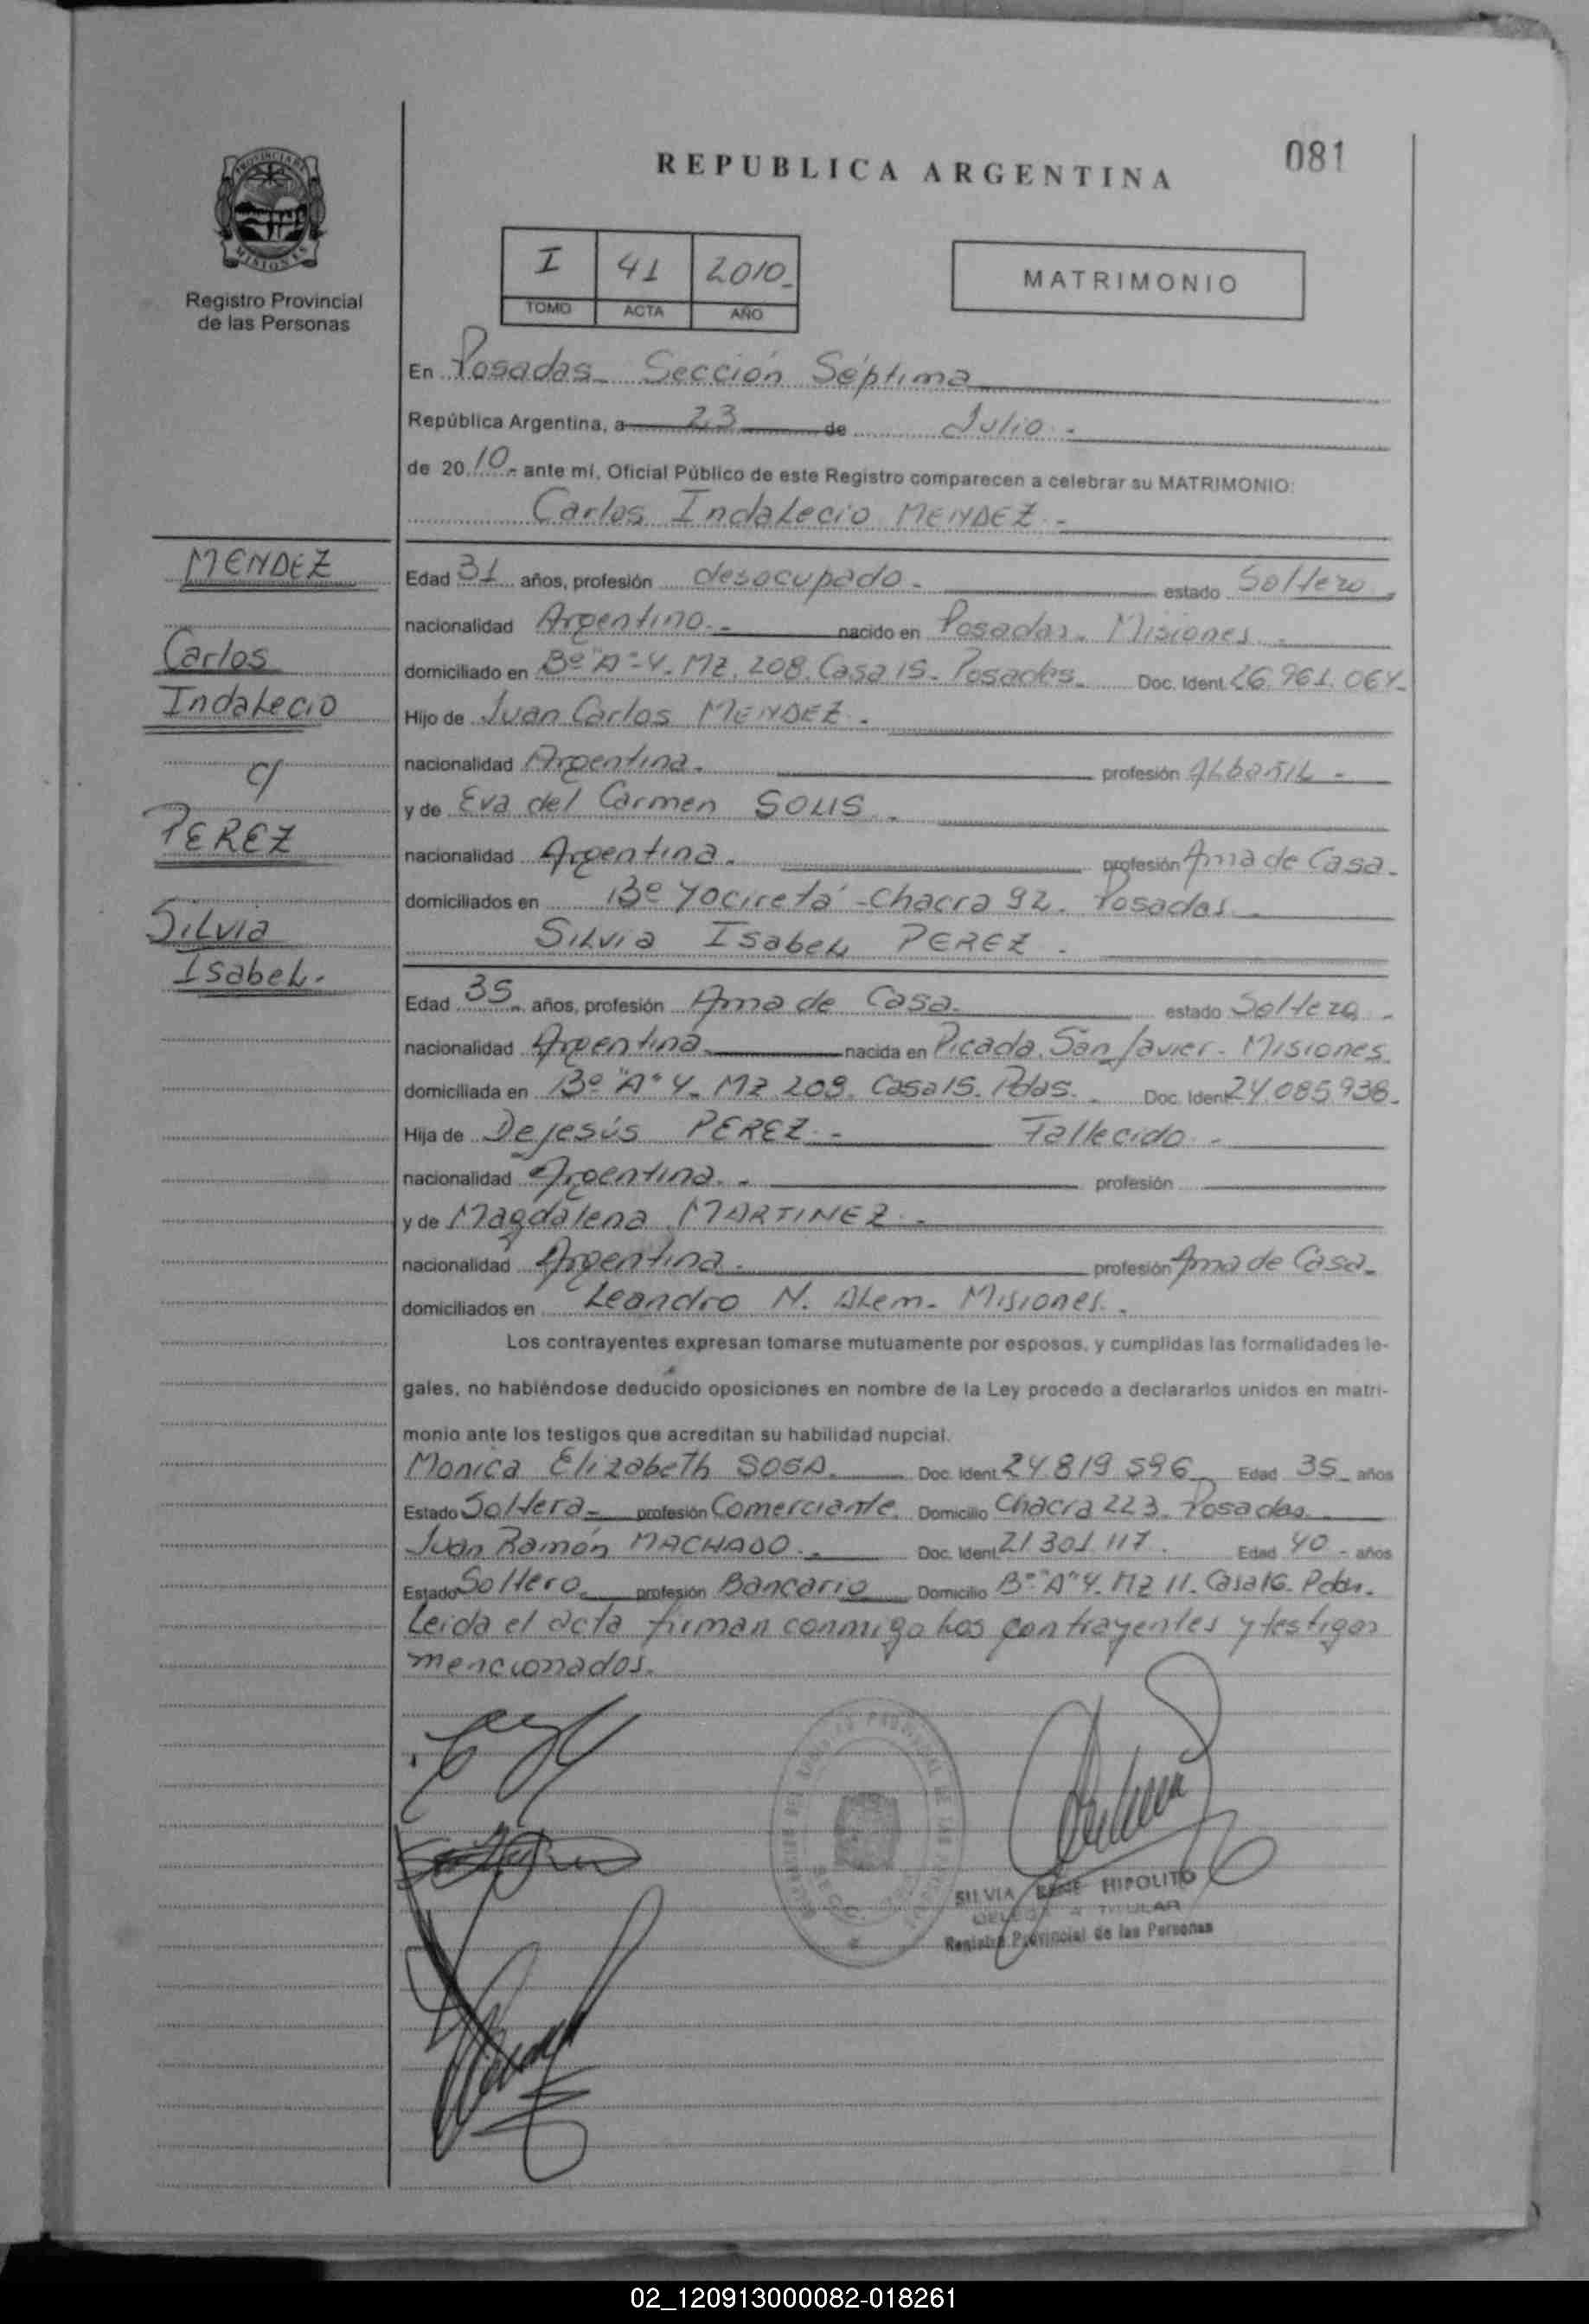 081
REPUBLICA ARGENTINA
PROVINCIA DE MISIONES
Registro Provincial
de las Personas
I 41 2010.-
TOMO ACTA AÑO
MATRIMONIO
En Posadas - Sección Séptima
República Argentina, a 23 de Julio.-
de 2010.- ante mí, Oficial Público de este Registro comparecen a celebrar su MATRIMONIO:
Carlos Indalecio MENDEZ.-
MENDEZ
Carlos
Indalecio
c/
PEREZ
Silvia
Isabel.-
Edad 31 años, profesión desocupado.- estado Soltero
nacionalidad Argentino.- nacido en Posadas. Misiones.-
domiciliado en Bº "A"-4. MZ. 208. Casa 15. Posadas. Doc. Ident. 26.961.064-
Hijo de Juan Carlos MENDEZ.-
nacionalidad Argentina.- profesión Albañil.-
y de Eva del Carmen SOLIS.-
nacionalidad Argentina.- profesión Ama de Casa.-
domiciliados en Bº Yaciretá - Chacra 92. Posadas.-
Silvia Isabel PEREZ.-
Edad 35 años, profesión Ama de Casa.- estado Soltera.-
nacionalidad Argentina nacida en Picada San Javier - Misiones.
domiciliada en Bº "A" 4. MZ. 208. Casa 15. Pdas. Doc. Ident. 24.085.938.-
Hija de De jesús PEREZ.- Fallecido.-
nacionalidad Argentina.- profesión
y de Magdalena MARTINEZ.-
nacionalidad Argentina.- profesión Ama de Casa.-
domiciliados en Leandro N. Alem - Misiones.-
Los contrayentes expresan tomarse mutuamente por esposos, y cumplidas las formalidades le-
gales, no habiéndose deducido oposiciones en nombre de la Ley procedo a declararlos unidos en matri-
monio ante los testigos que acreditan su habilidad nupcial.
Monica Elizabeth SOSA. Doc. Ident. 24.819.596 Edad 35 años
Estado Soltera.- profesión Comerciante. Domicilio Chacra 223. Posadas.
Juan Ramón MACHADO.- Doc. Ident. 21.301.117. Edad 40 - años
Estado Soltero.- profesión Bancario Domicilio Bº "A" 4. MZ 11. Casa 16. Pdas.
Leida el acta firman conmigo los contrayentes y testigos
mencionados.
SILVIA RENE HIPOLITO
DELEGADA TITULAR
Registro Provincial de las Personas
02_120913000082-018261